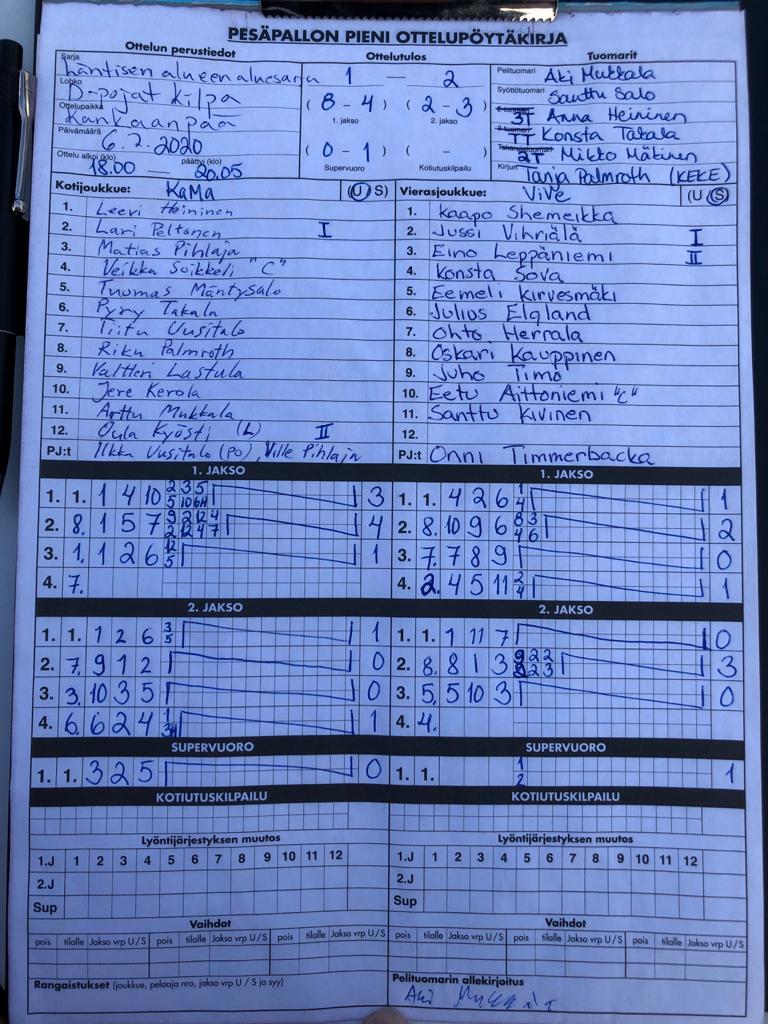 PESÄPALLON PIENI OTTELUPÖYTÄKIRJA
Ottelun perustiedot
Ottelutulos
Tuomarit
Sarja
Läntisen alueen aluesarja
Lohko
D-pojat kilpa
Ottelupaikka
Kankaanpää
Päivämäärä
6.7.2020
Ottelu alkoi (klo) päättyi (klo)
18.00 — 20.05
1 — 2
(8 - 4) (2 - 3)
1. jakso 2. jakso
(0 - 1) ( - )
Supervuoro Kotiutuskilpailu
Pelituomari Aki Mukkala
Syöttötuomari Santtu Salo
3T Anna Heininen
TT Konsta Takala
2T Mikko Mäkinen
Kirjuri Tanja Palmroth (KEKE)
Kotijoukkue: KaMa (U S)
1. Leevi Heininen
2. Lari Peltonen I
3. Matias Pihlaja
4. Veikka Soikkeli "C"
5. Tuomas Mäntysalo
6. Pyry Takala
7. Tiitu Uusitalo
8. Riku Palmroth
9. Valtteri Lastula
10. Jere Kerola
11. Arttu Mukkala
12. Oula Kyösti (L) II
PJ:t Ilkka Uusitalo (PO), Ville Pihlaja
Vierasjoukkue: ViVe (U S)
1. Kaapo Shemeikka
2. Jussi Vihriälä I
3. Eino Leppäniemi II
4. Konsta Sova
5. Eemeli Kirvesmäki
6. Julius Elgland
7. Ohto Herrala
8. Oskari Kauppinen
9. Juho Timo
10. Eetu Aittoniemi "C"
11. Santtu Kivinen
12.
PJ:t Onni Timmerbacka
1. JAKSO
1. 1. 1 4 10 2 3 5 5 10 3
2. 8. 1 5 7 9 2 12 4 2 12 4 7 4
3. 1. 1 2 6 12 5 1
4. 7.
1. JAKSO
1. 1. 4 2 6 1 4 1
2. 8. 10 9 6 8 3 4 6 2
3. 7. 7 8 9 0
4. 2. 4 5 11 2 4 1
2. JAKSO
1. 1. 1 2 6 3 5 1
2. 7. 9 1 2 0
3. 3. 10 3 5 0
4. 6. 6 2 4 1 1
2. JAKSO
1. 1. 1 11 7 0
2. 8. 8 1 3 2 2 2 3 3
3. 5. 5 10 3 0
4. 4.
SUPERVUORO
1. 1. 3 2 5 0
SUPERVUORO
1. 1. 1 2 1
KOTIUTUSKILPAILU
KOTIUTUSKILPAILU
Lyöntijärjestyksen muutos
1.J 1 2 3 4 5 6 7 8 9 10 11 12
2.J
Sup
Lyöntijärjestyksen muutos
1.J 1 2 3 4 5 6 7 8 9 10 11 12
2.J
Sup
Vaihdot
pois tilalle Jakso vrp U/S pois tilalle Jakso vrp U/S pois tilalle Jakso vrp U/S
Vaihdot
pois tilalle Jakso vrp U/S pois tilalle Jakso vrp U/S pois tilalle Jakso vrp U/S
Rangaistukset (joukkue, pelaaja nro, jakso vrp U / S ja syy)
Pelituomarin allekirjoitus
Aki Mukkala